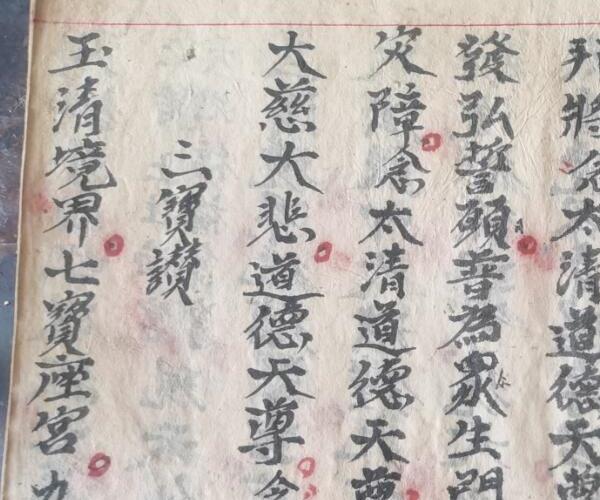 將念太清道德天尊
發弘誓願普為眾生
災障念太清道德天尊
大慈大悲道德天尊念
三寶讚
玉清境界七寶座宮九